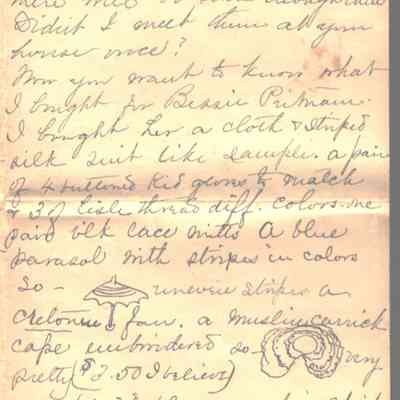 Didn't I meet them at your
house once?
Now you want to know what
I bought for Bessie Putnam.
I bought her a cloth & striped
silk suit like samples. a pair
of 4 buttoned Kid gloves to match
& 3 of lisle thread diff. colors. one
pair silk lace mitts A blue
parasol with stripes in colors
so - uneven stripes a
Cretonne fan. a muslin carrick
cape embroidered so - very
pretty ($3.50 I believe)